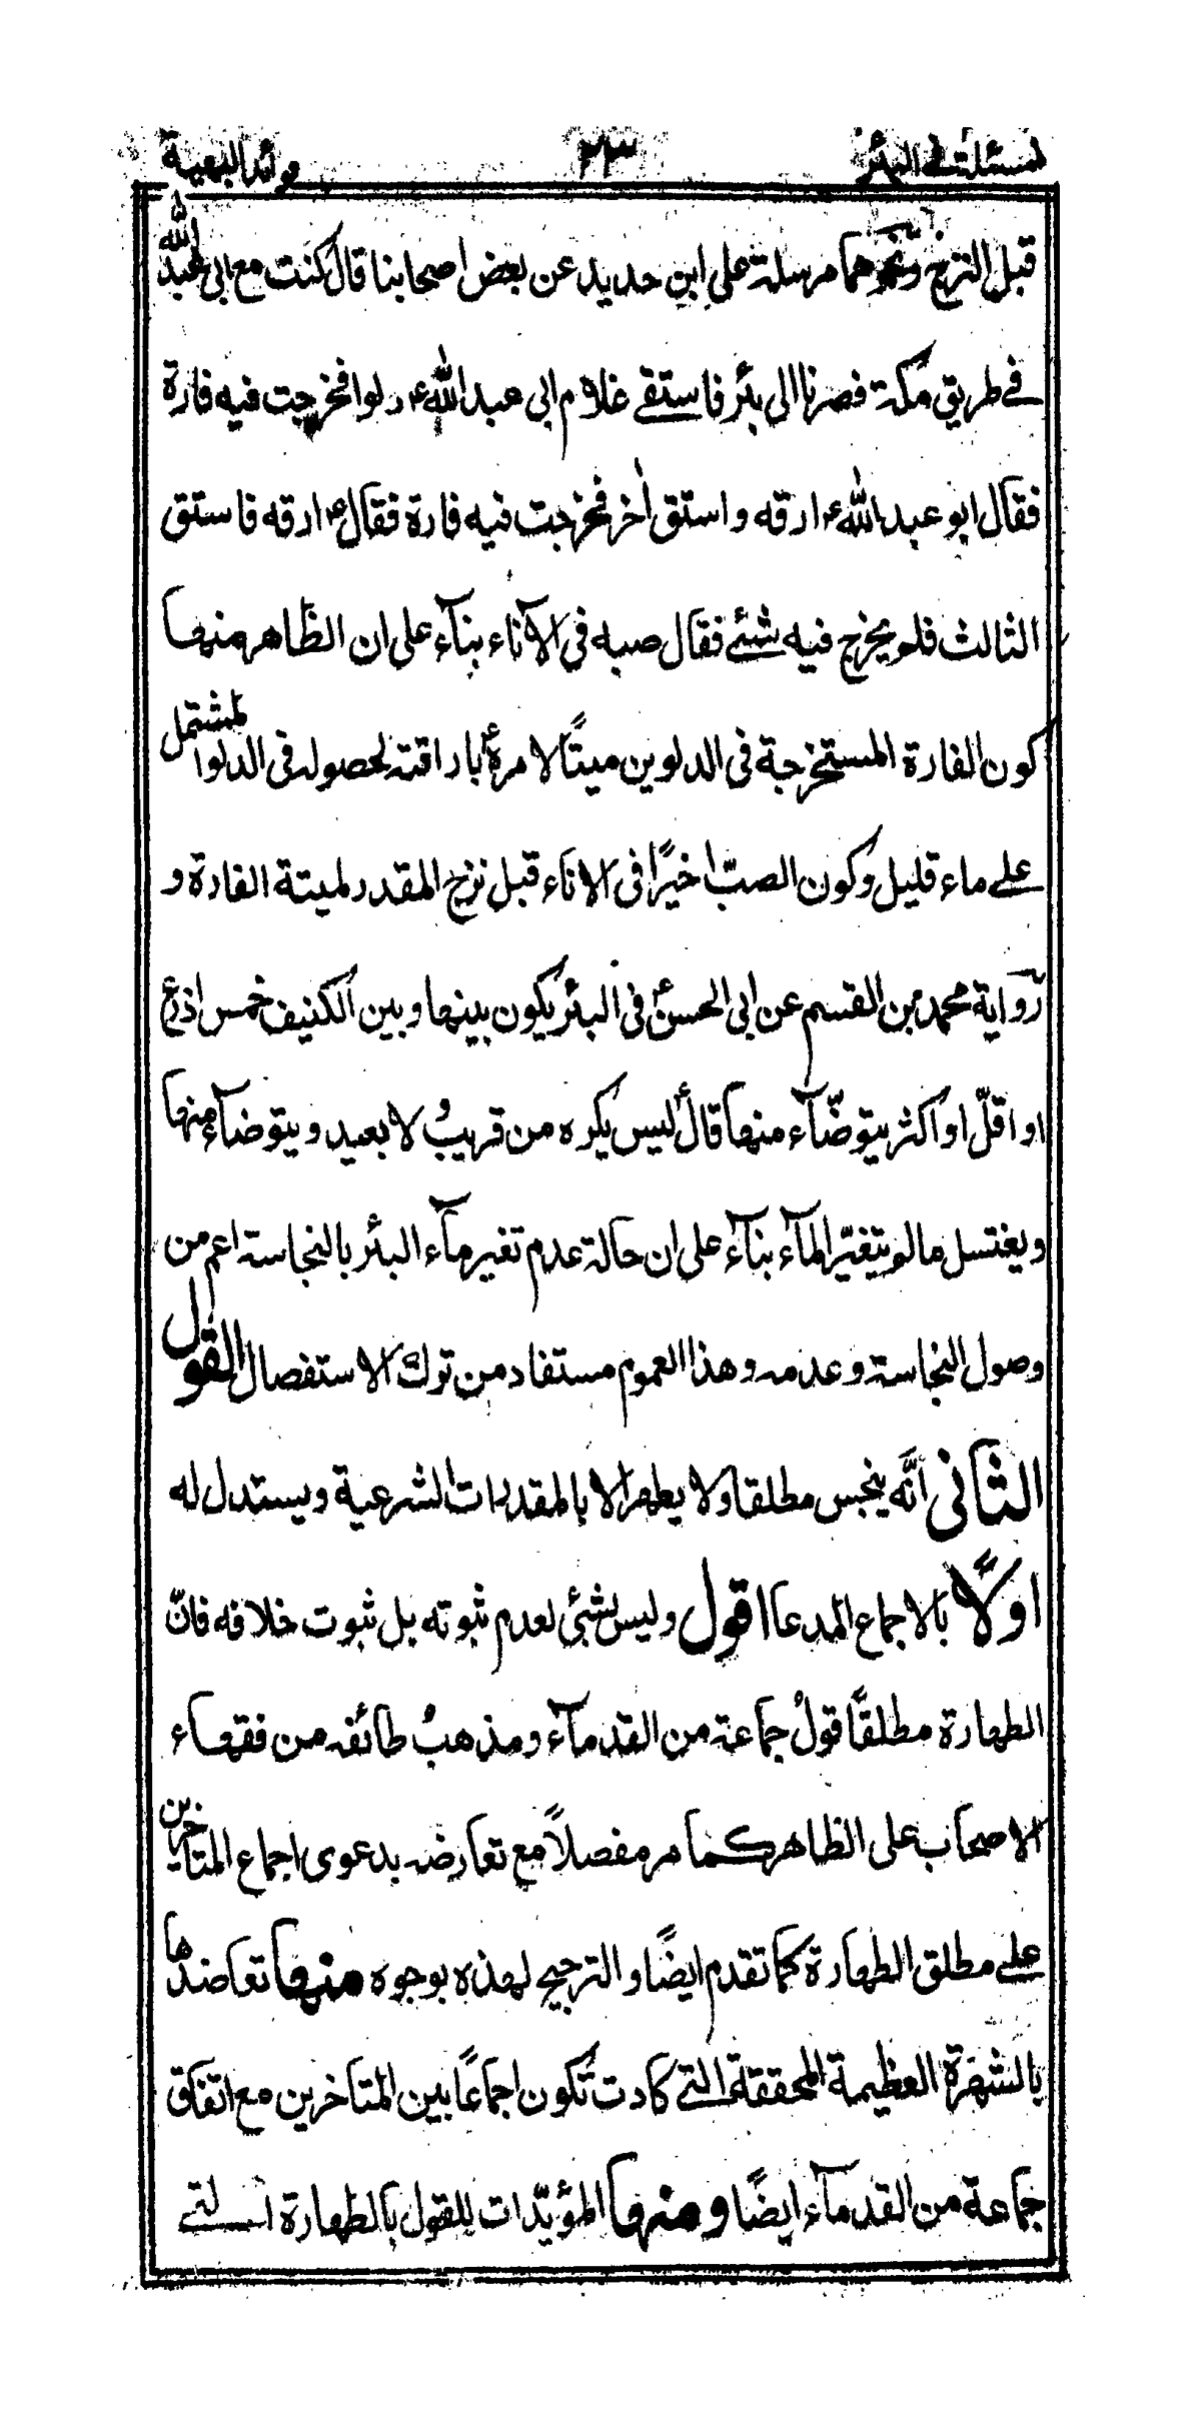 مسئلة فى البئر ٢٣ فوائد البهية
قبل النزح ونحوهما مرسلة على ابن حديد عن بعض اصحابنا قال كنت مع ابى عبد الله
فے طريق مكة فصرنا الى بئر فاستقے غلام ابى عبد الله ع دلوا فخرجت فيه فارة
فقال ابو عبد الله ع ارقه واستق اٰخر فخرجت فيه فارة فقال ع ارقه فاستق
الثالث فلم يخرج فيه شئے فقال صبه فى الآناء بنآء على ان الظاهر منها
كون الفارة المستخرجة فى الدلوين ميتًا لامرهٔ باراقته لحصوله فى الدلو المشتمل
علے ماء قليل وكون الصبّ اخيرًا فى الاناء قبل نزح المقدر لميتة الفارة و
رواية محمد بن القسم عن ابى الحسن ع فى البئر يكون بينها وبين الكنيف خمس اذرع
او اقلّ او اكثر يتوضّآء منها قال ليس يكره من قريبٌ ولا بعيد ويتوضآء منها
ويغتسل مالم يتغيّر المآء بنآء على ان حالة عدم تغير مآء البئر بالنجاسة اعم من
وصول النجاسة وعدمه وهذا العموم مستفاد من ترك الاستفصال القول
الثانى انّه ينجس مطلقا ولا يطهر الا بالمقدرات الشرعية ويستدل له
اولًا بالاجماع المدعا اقول وليس بشئى لعدم ثبوته بل ثبوت خلافه فانّ
الطهارة مطلقًا قولُ جماعة من القدمآء ومذهبُ طائفه من فقهاء
الاصحاب على الظاهر كما مر مفصلاً مع تعارضه بدعوى اجماع المتاخرين
علے مطلق الطهارة كما تقدم ايضًا والترجيح لهذه بوجوه منها تعاضدها
بالشهرة العظيمة المحققة التے كادت تكون اجماعًا بين المتاخرين مع اتفاق
جماعة من القدمآء ايضًا ومنها المؤيّدات للقول بالطهارة التے